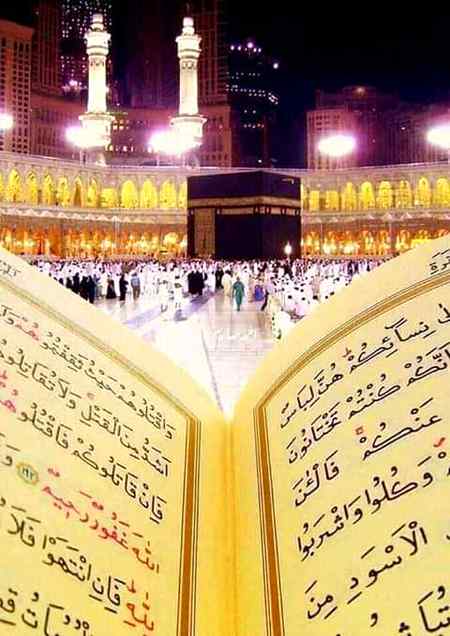 نِسَآئِكُمْ هُنَّ لِبَاسٌ
اَنَّكُمْ كُنْتُمْ تَخْتَانُونَ
عَنْكُمْ فَالْـٰٔنَ
وَكُلُوا وَاشْرَبُوا
الْاَسْوَدِ مِنَ
وَاقْتُلُوهُمْ حَيْثُ ثَقِفْتُمُوهُمْ
اَشَدُّ مِنَ الْقَتْلِ وَلَا تُقَاتِلُو
فَاِنْ قَاتَلُوكُمْ فَاقْتُلُوهُمْ
اللّٰهَ غَفُورٌ رَحِيمٌ ١٩٢
لِلّٰهِ فَاِنِ انْتَهَوْا فَلَا